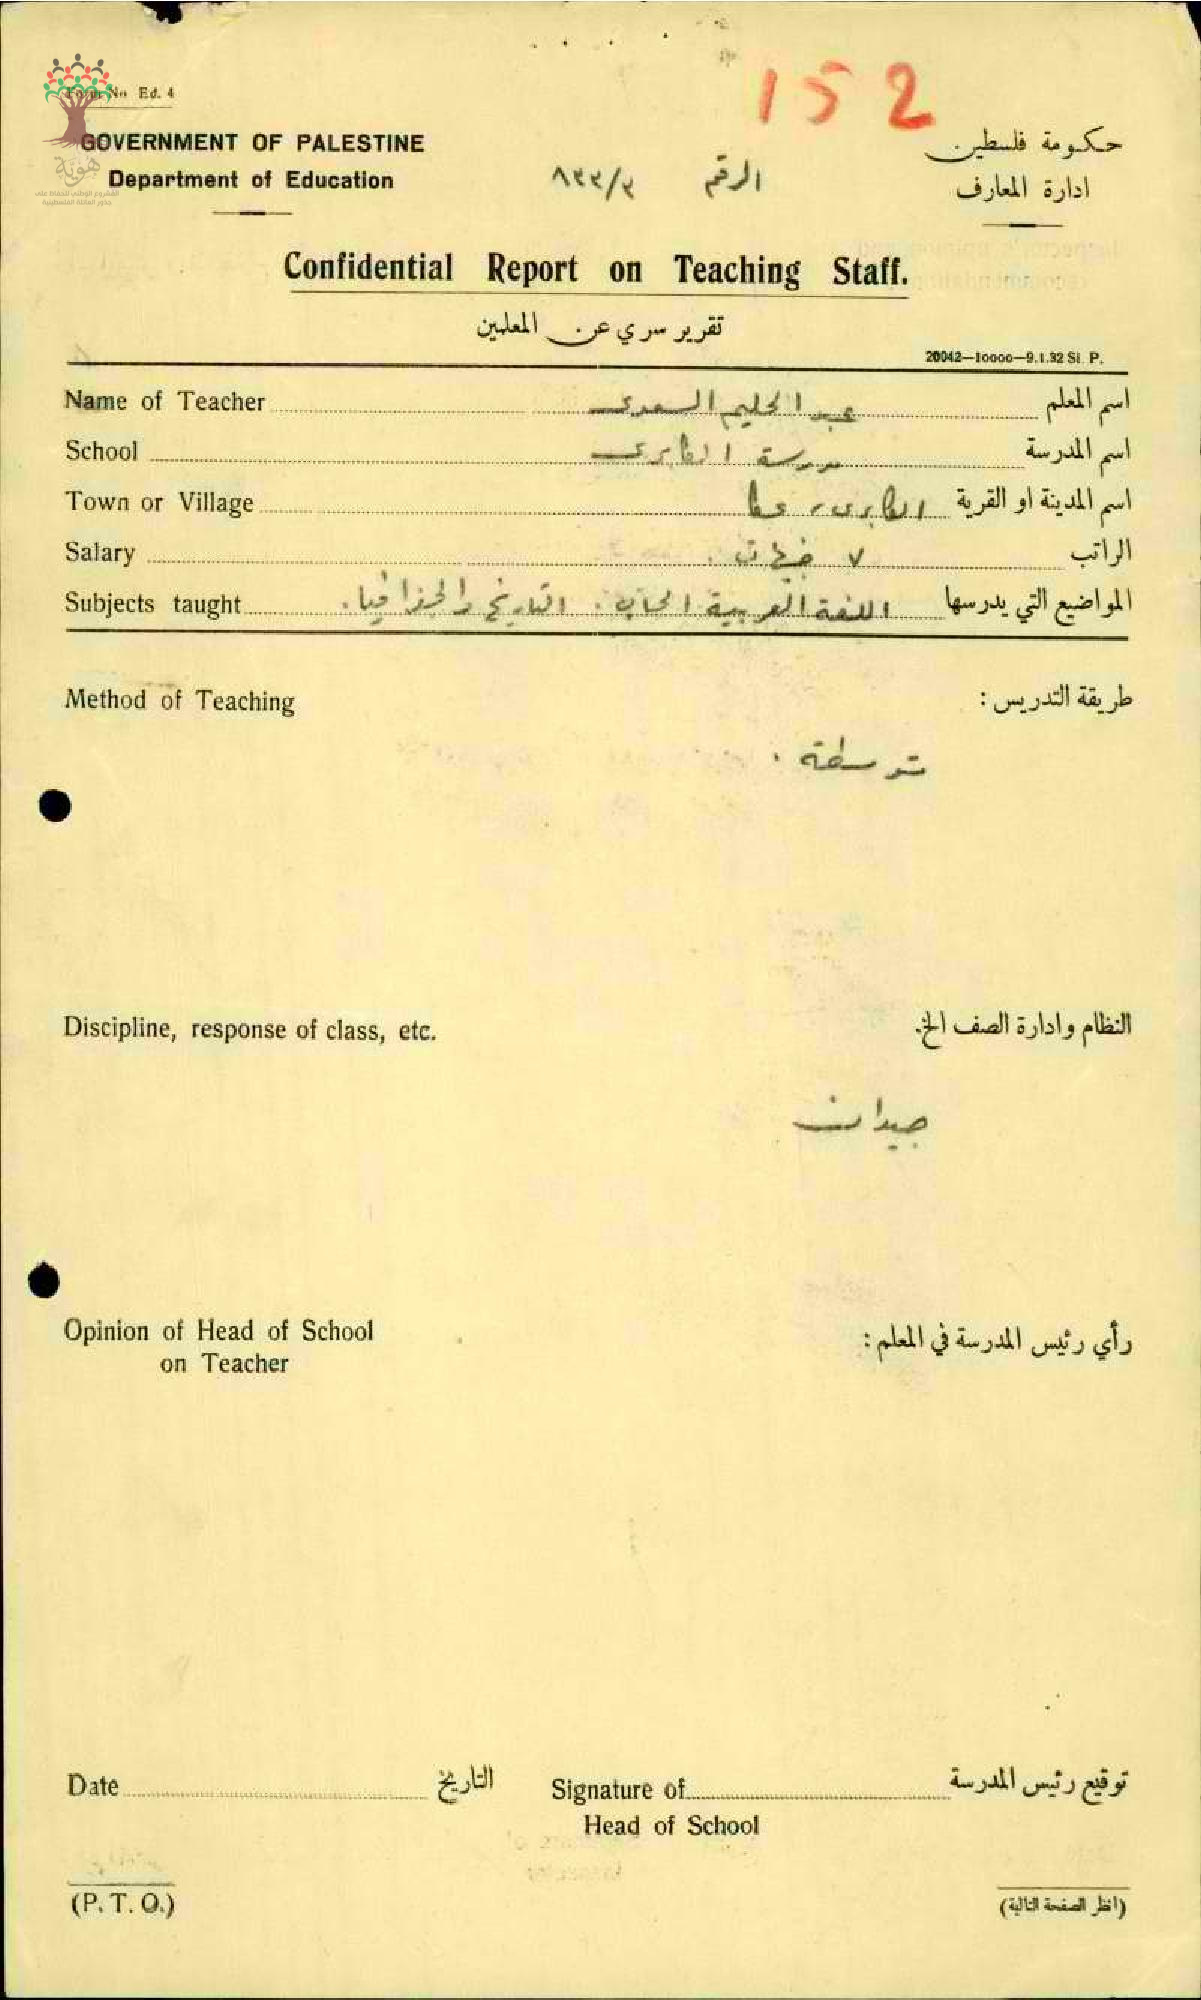 152
Form No Ed. 4
GOVERNMENT OF PALESTINE
حكومة فلسطين
هوية
Department of Education
الرقم ٨٣٣/٣
ادارة المعارف
المشروع الوطني للحفاظ على
جذور العائلة الفلسطينية
Confidential Report on Teaching Staff.
تقرير سري عن المعلمين
20042—10000—9.1.32 St. P.
Name of Teacher عبد الحليم السعدي اسم المعلم
School مدرسة الكابري اسم المدرسة
Town or Village الكابري، عكا اسم المدينة او القرية
Salary ٧ جنيهات الراتب
Subjects taught اللغة العربية الحساب . التاريخ والجغرافيا . المواضيع التي يدرسها
Method of Teaching طريقة التدريس :
متوسطة .
Discipline, response of class, etc. النظام وادارة الصف الخ.
جيدان
Opinion of Head of School رأي رئيس المدرسة في المعلم :
on Teacher
Date التاريخ Signature of توقيع رئيس المدرسة
Head of School
(P. T. O.) (انظر الصفحة التالية)